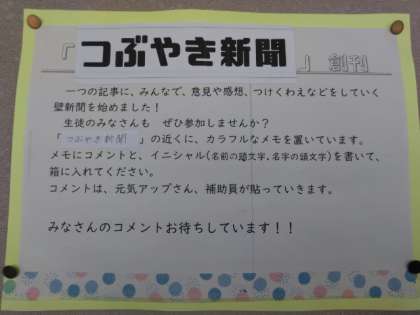 「つぶやき新聞」創刊
一つの記事に、みんなで、意見や感想、つけくわえなどをしていく
壁新聞を始めました！
生徒のみなさんも　ぜひ参加しませんか？
「つぶやき新聞　」の近くに、カラフルなメモを置いています。
メモにコメントと、イニシャル(名前の頭文字,名字の頭文字)を書いて、
箱に入れてください。
コメントは、元気アップさん、補助員が貼っていきます。
みなさんのコメントお待ちしています！！